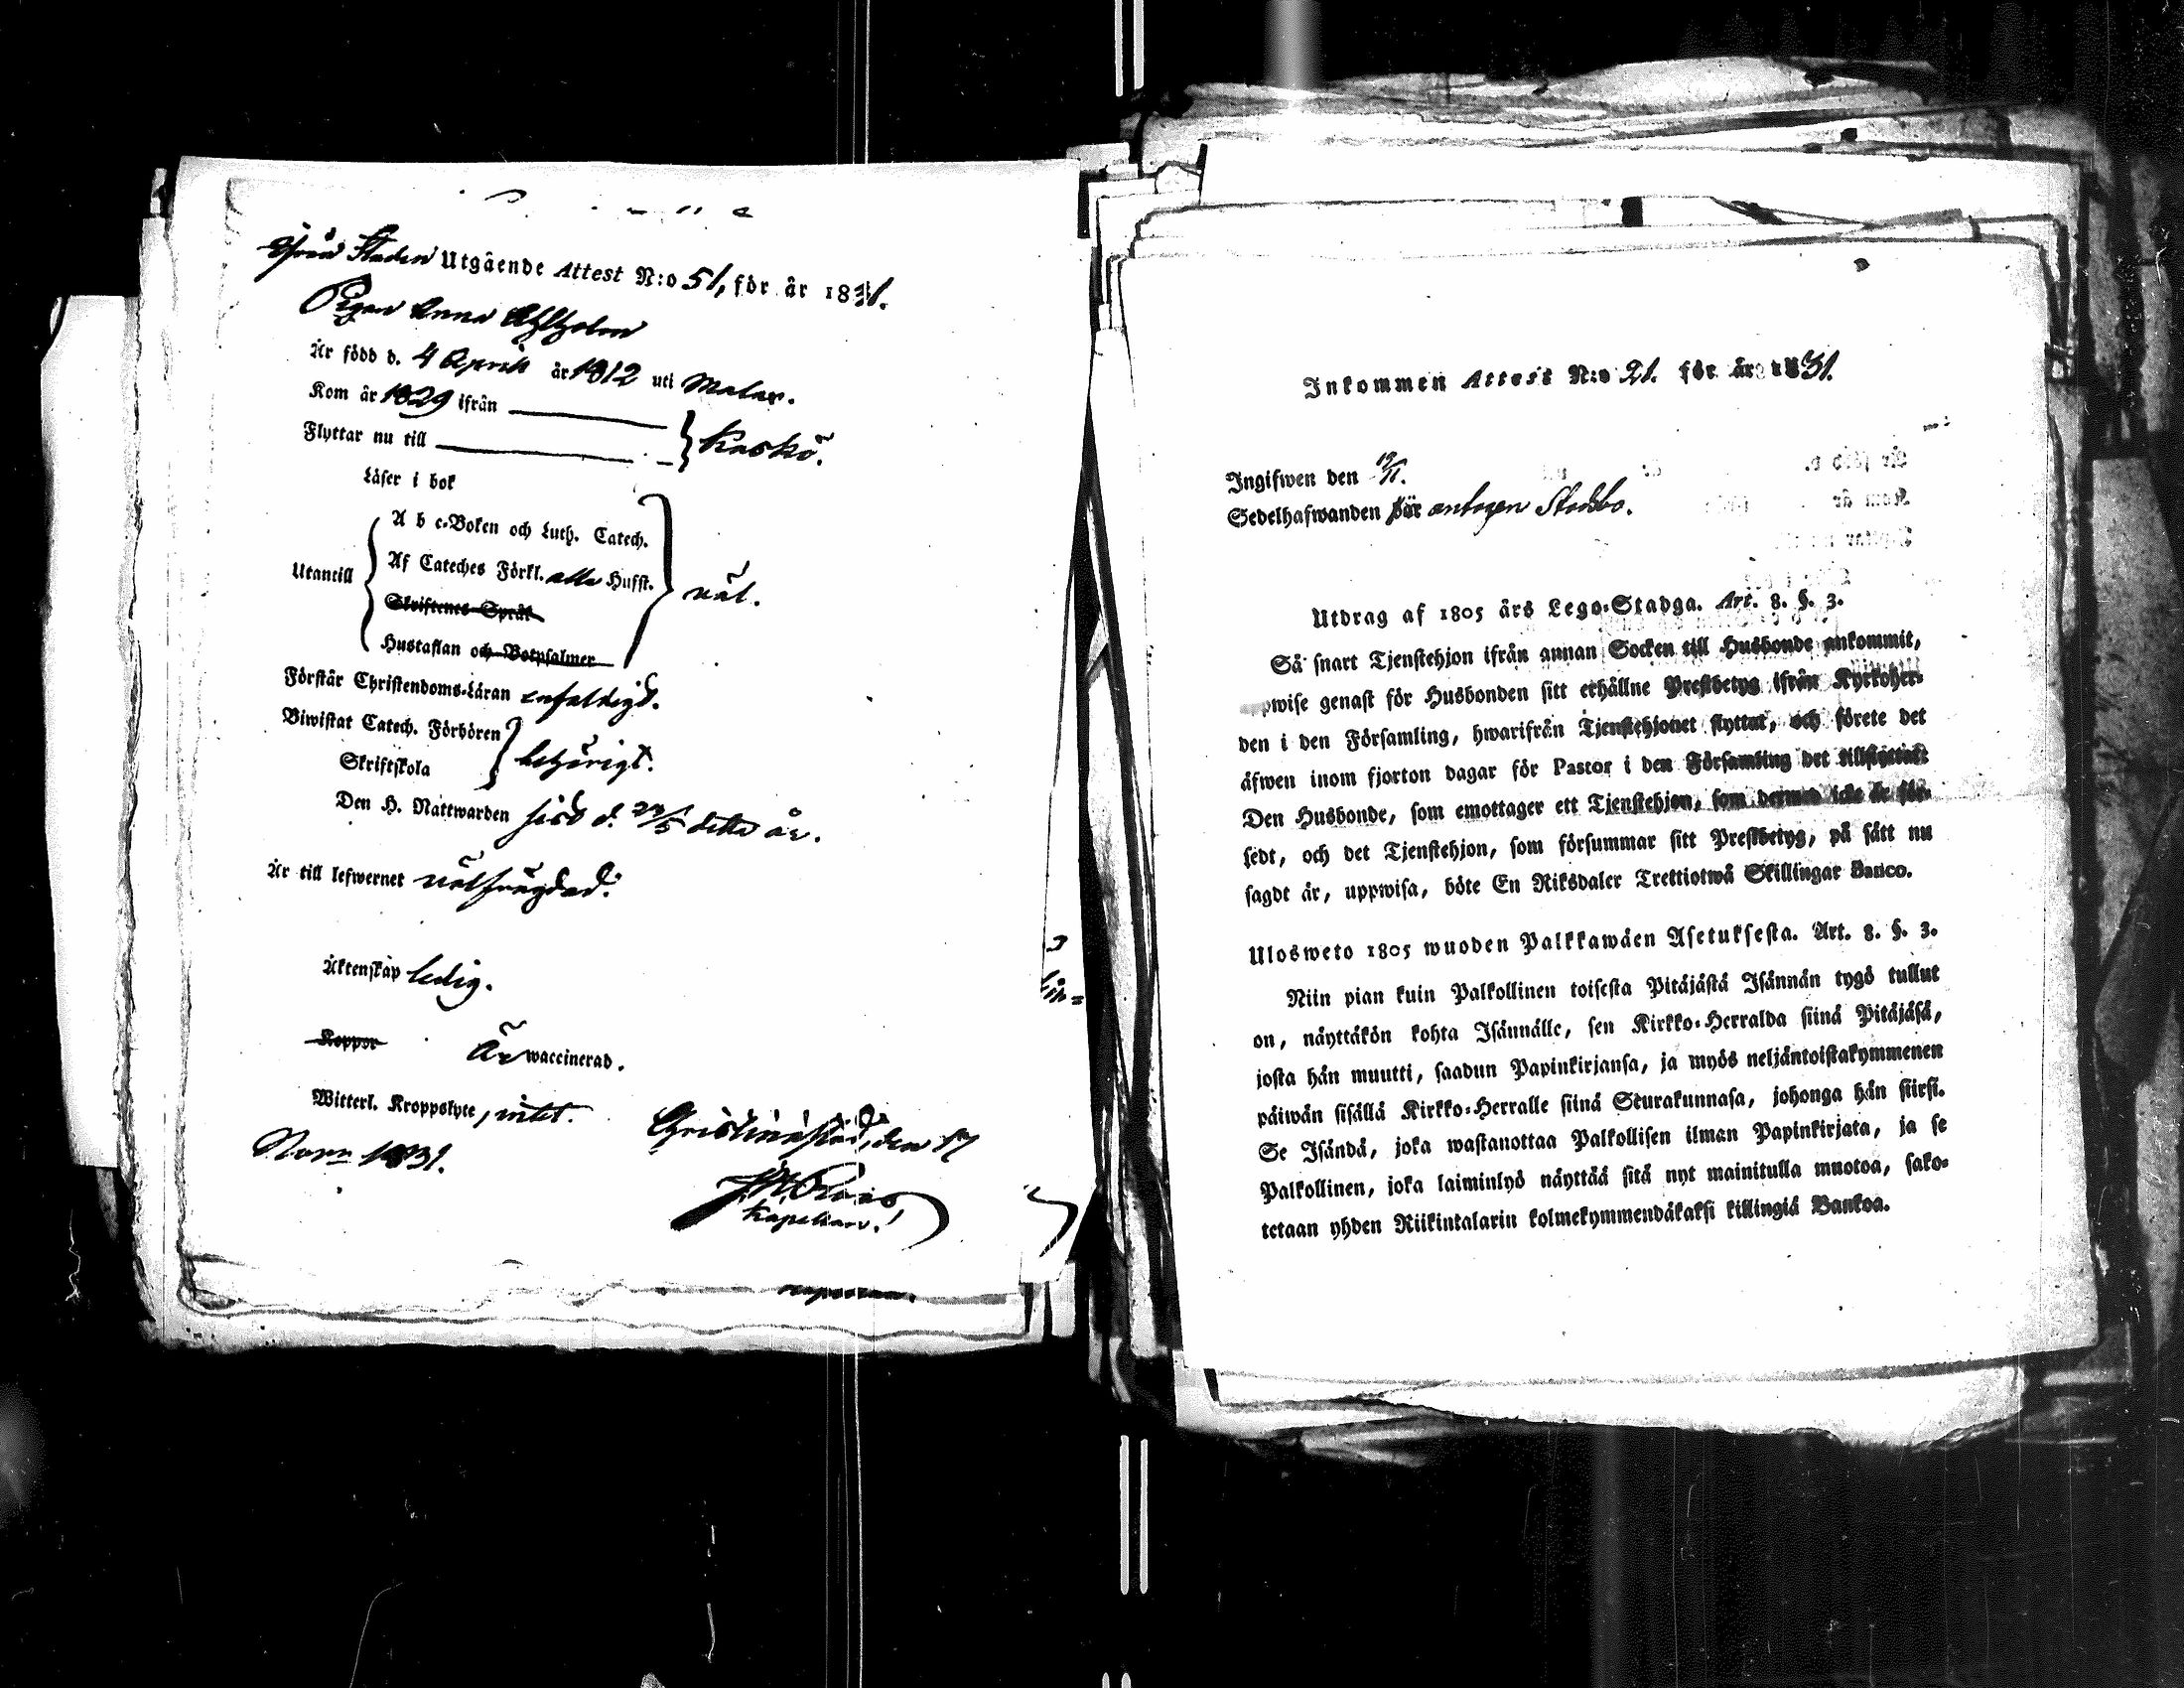 ifrån Staden Utgående Attest N:o 51, för år 1831.
Pigan Anna
Är född d. 4 April år 1812 uti Malax.
Kom år 1829 ifrån
Flyttar nu till } Kaskö.
Läser i bok
A b c-Boken och Luth. Catech.
Utantill Af Cateches Förkl. alla Hufst. väl.
Skriftenes Språk
Hustaflan och Botpsalmer
Förstår Christendoms-Läran enfaldigt.
Biwistat Catech. Förhören
Skriftskola } behörigt.
Den H. Nattwarden sist d. /5 detta år.
Är till lefwernet välfrägdad.
Äktenskap ledig.
Koppor Är waccinerad.
Witterl. Kroppslyte, intet.
Christinestad, den 17
Novr 1831.
Kapellan.
Inkommen Attest N:o 21. för år 1831.
Ingifwen den 19/11.
Sedelhafwanden är antagen Stadsbo.
Utdrag af 1805 års Lego-Stadga. Art. 8. §. 3.
Så snart Tjenstehjon ifrån annan Socken till Husbonde ankommit,
uppwise genast för Husbonden sitt erhållne Prestbetyg ifrån Kyrkoher-
den i den Församling, hwarifrån Tjenstehjonet flyttat, och förete det
äfwen inom fjorton dagar för Pastor i den Församling det tillflyttat.
Den Husbonde, som emottager ett Tjenstehjon, som dermed icke är för-
sedt, och det Tjenstehjon, som försummar sitt Prestbetyg, på sätt nu
sagdt är, uppwisa, böte En Riksdaler Trettiotwå Skillingar Banco.
Ulosweto 1805 wuoden Palkkawäen Asetuksesta. Art. 8. §. 3.
Niin pian kuin Palkollinen toisesta Pitäjästä Isännän tygö tullut
on, näyttäkön kohta Isännälle, sen Kirkko-Herralda siinä Pitäjäsä,
josta hän muutti, saadun Papinkirjansa, ja myös neljäntoistakymmenen
päiwän sisällä Kirkko-Herralle siinä Seurakunnasa, johonga hän siirsi.
Se Isändä, joka wastanottaa Palkollisen ilman Papinkirjata, ja se
Palkollinen, joka laiminlyö näyttää sitä nyt mainitulla muotoa, sako-
tetaan yhden Riikintalarin kolmekymmendäkaksi killingiä Bankoa.